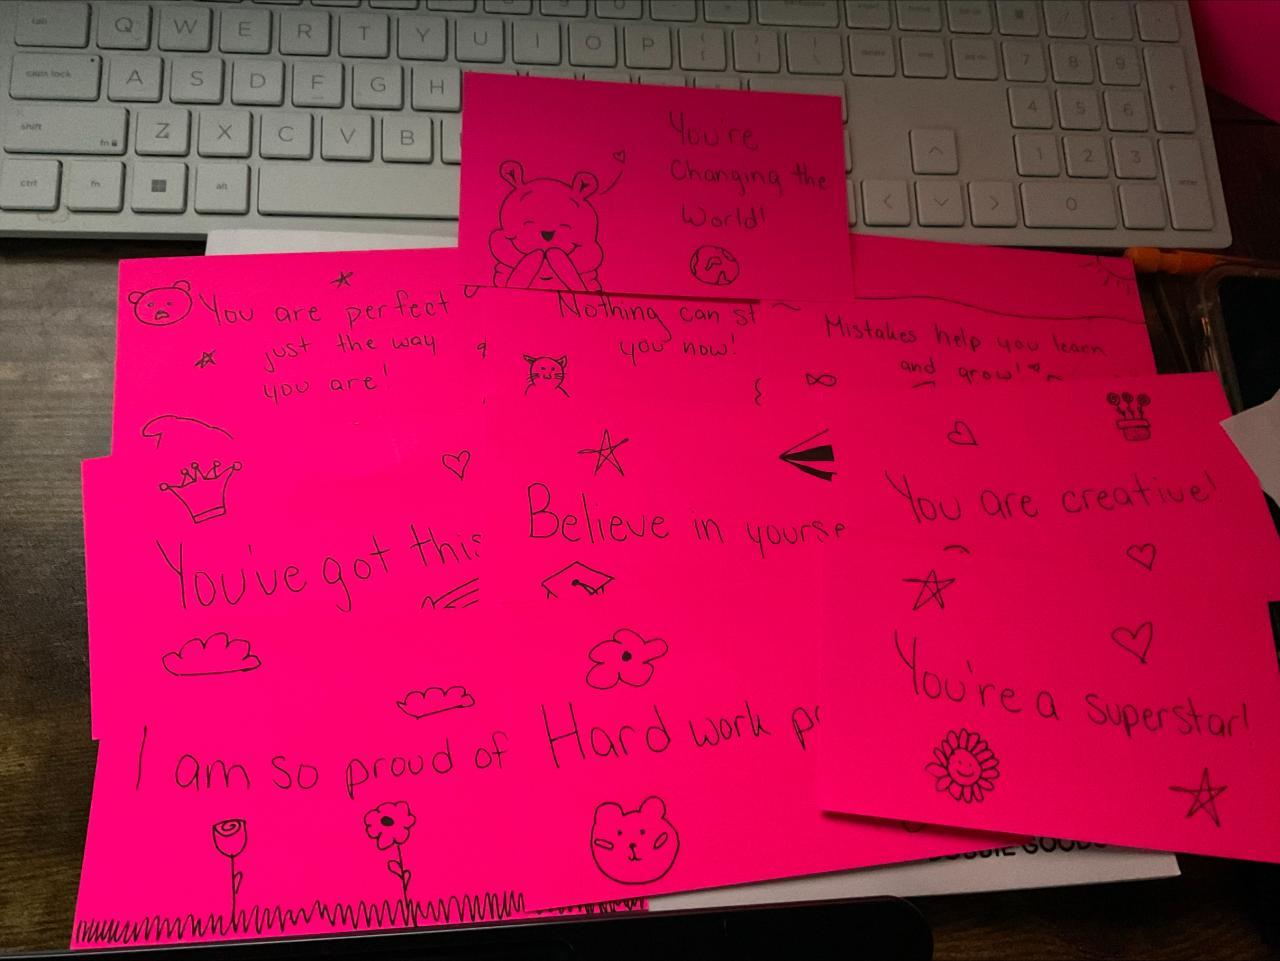 tab Q W E R T Y U I O P
caps lock A S D F G H 7 8 9
shift fn Z X C V B 4 5 6
1 2 3 enter
ctrl fn alt 0
You're
Changing the
World!
You are perfect
just the way
you are!
Nothing can st
you now!
Mistakes help you learn
and grow!
You've got this
Believe in yourse
You are creative!
I am so proud of
Hard work pr
You're a superstar!